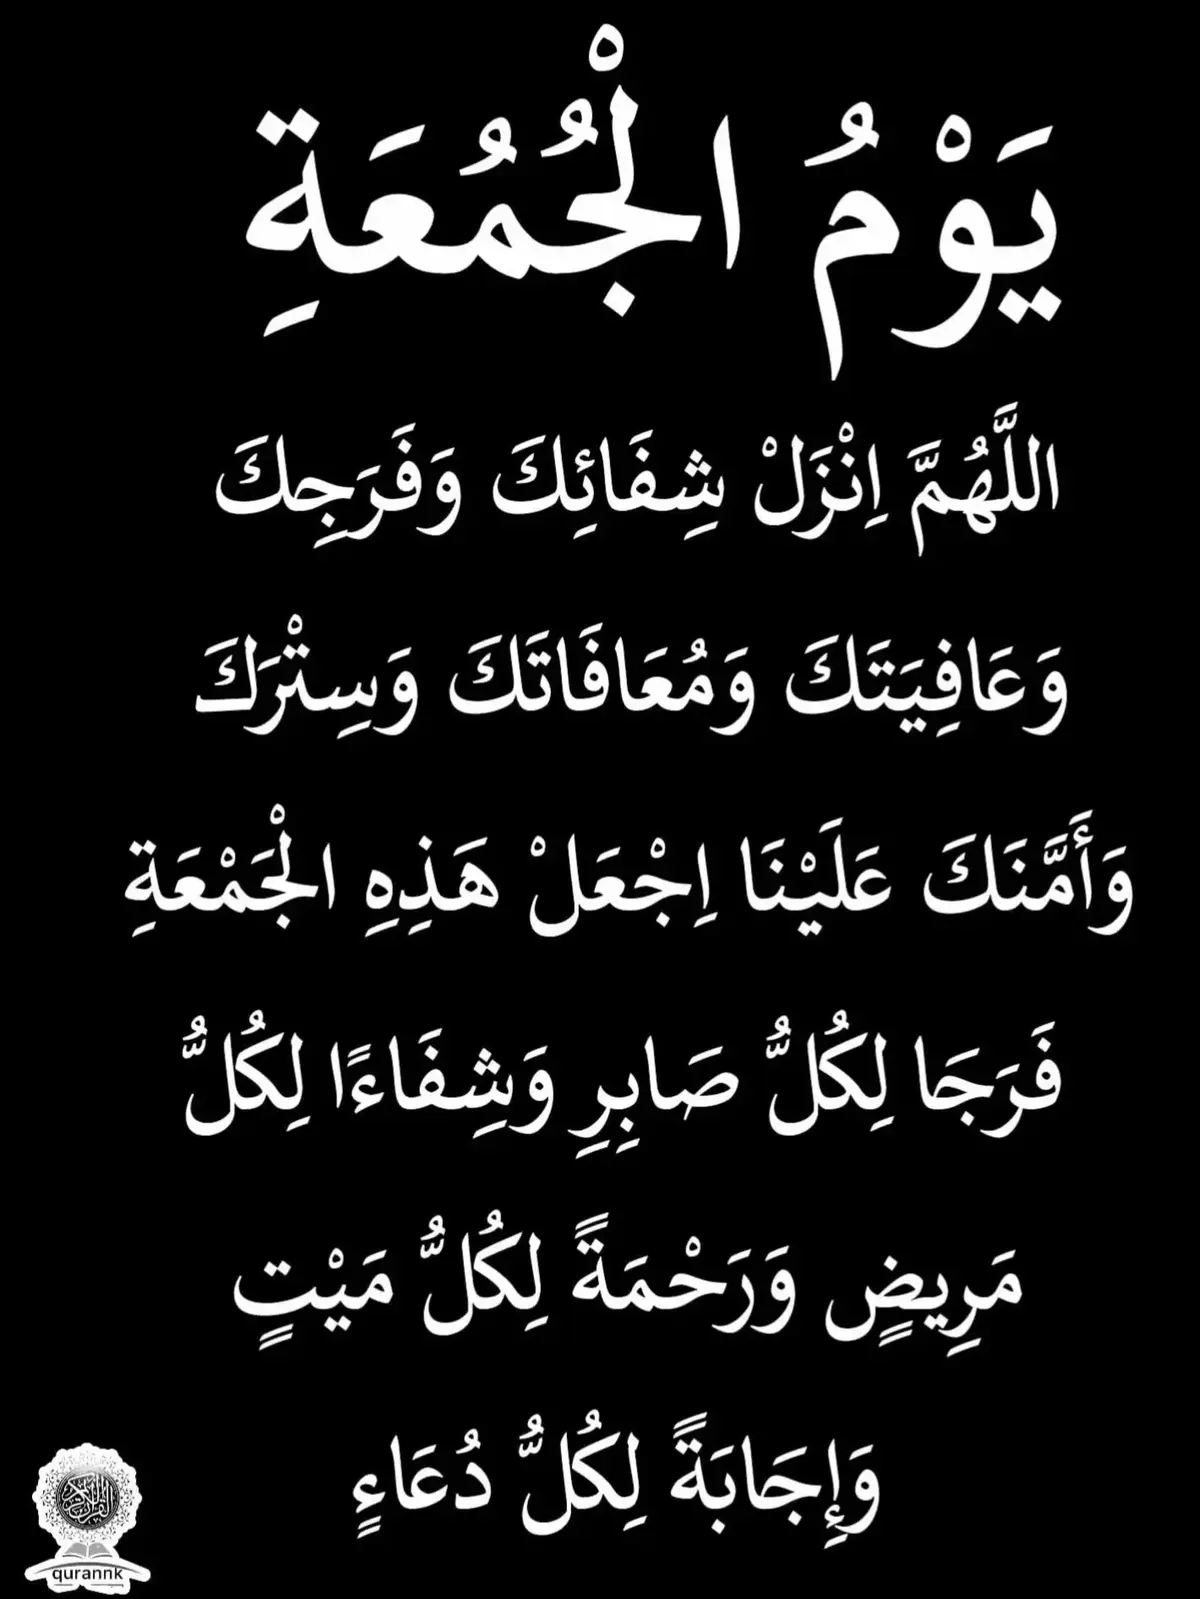 يَوْمُ الْجُمُعَةِ
اللَّهُمَّ اِنْزَلْ شِفَائِكَ وَفَرَجِكَ
وَعَافِيَتَكَ وَمُعَافَاتَكَ وَسِتْرَكَ
وَأَمَّنَكَ عَلَيْنَا اِجْعَلْ هَذِهِ الْجَمْعَةِ
فَرَجَا لِكُلُّ صَابِرِ وَشِفَاءًا لِكُلُّ
مَرِيضٍ وَرَحْمَةً لِكُلُّ مَيْتٍ
وَإِجَابَةً لِكُلُّ دُعَاءٍ
القرآن الكريم
qurannk